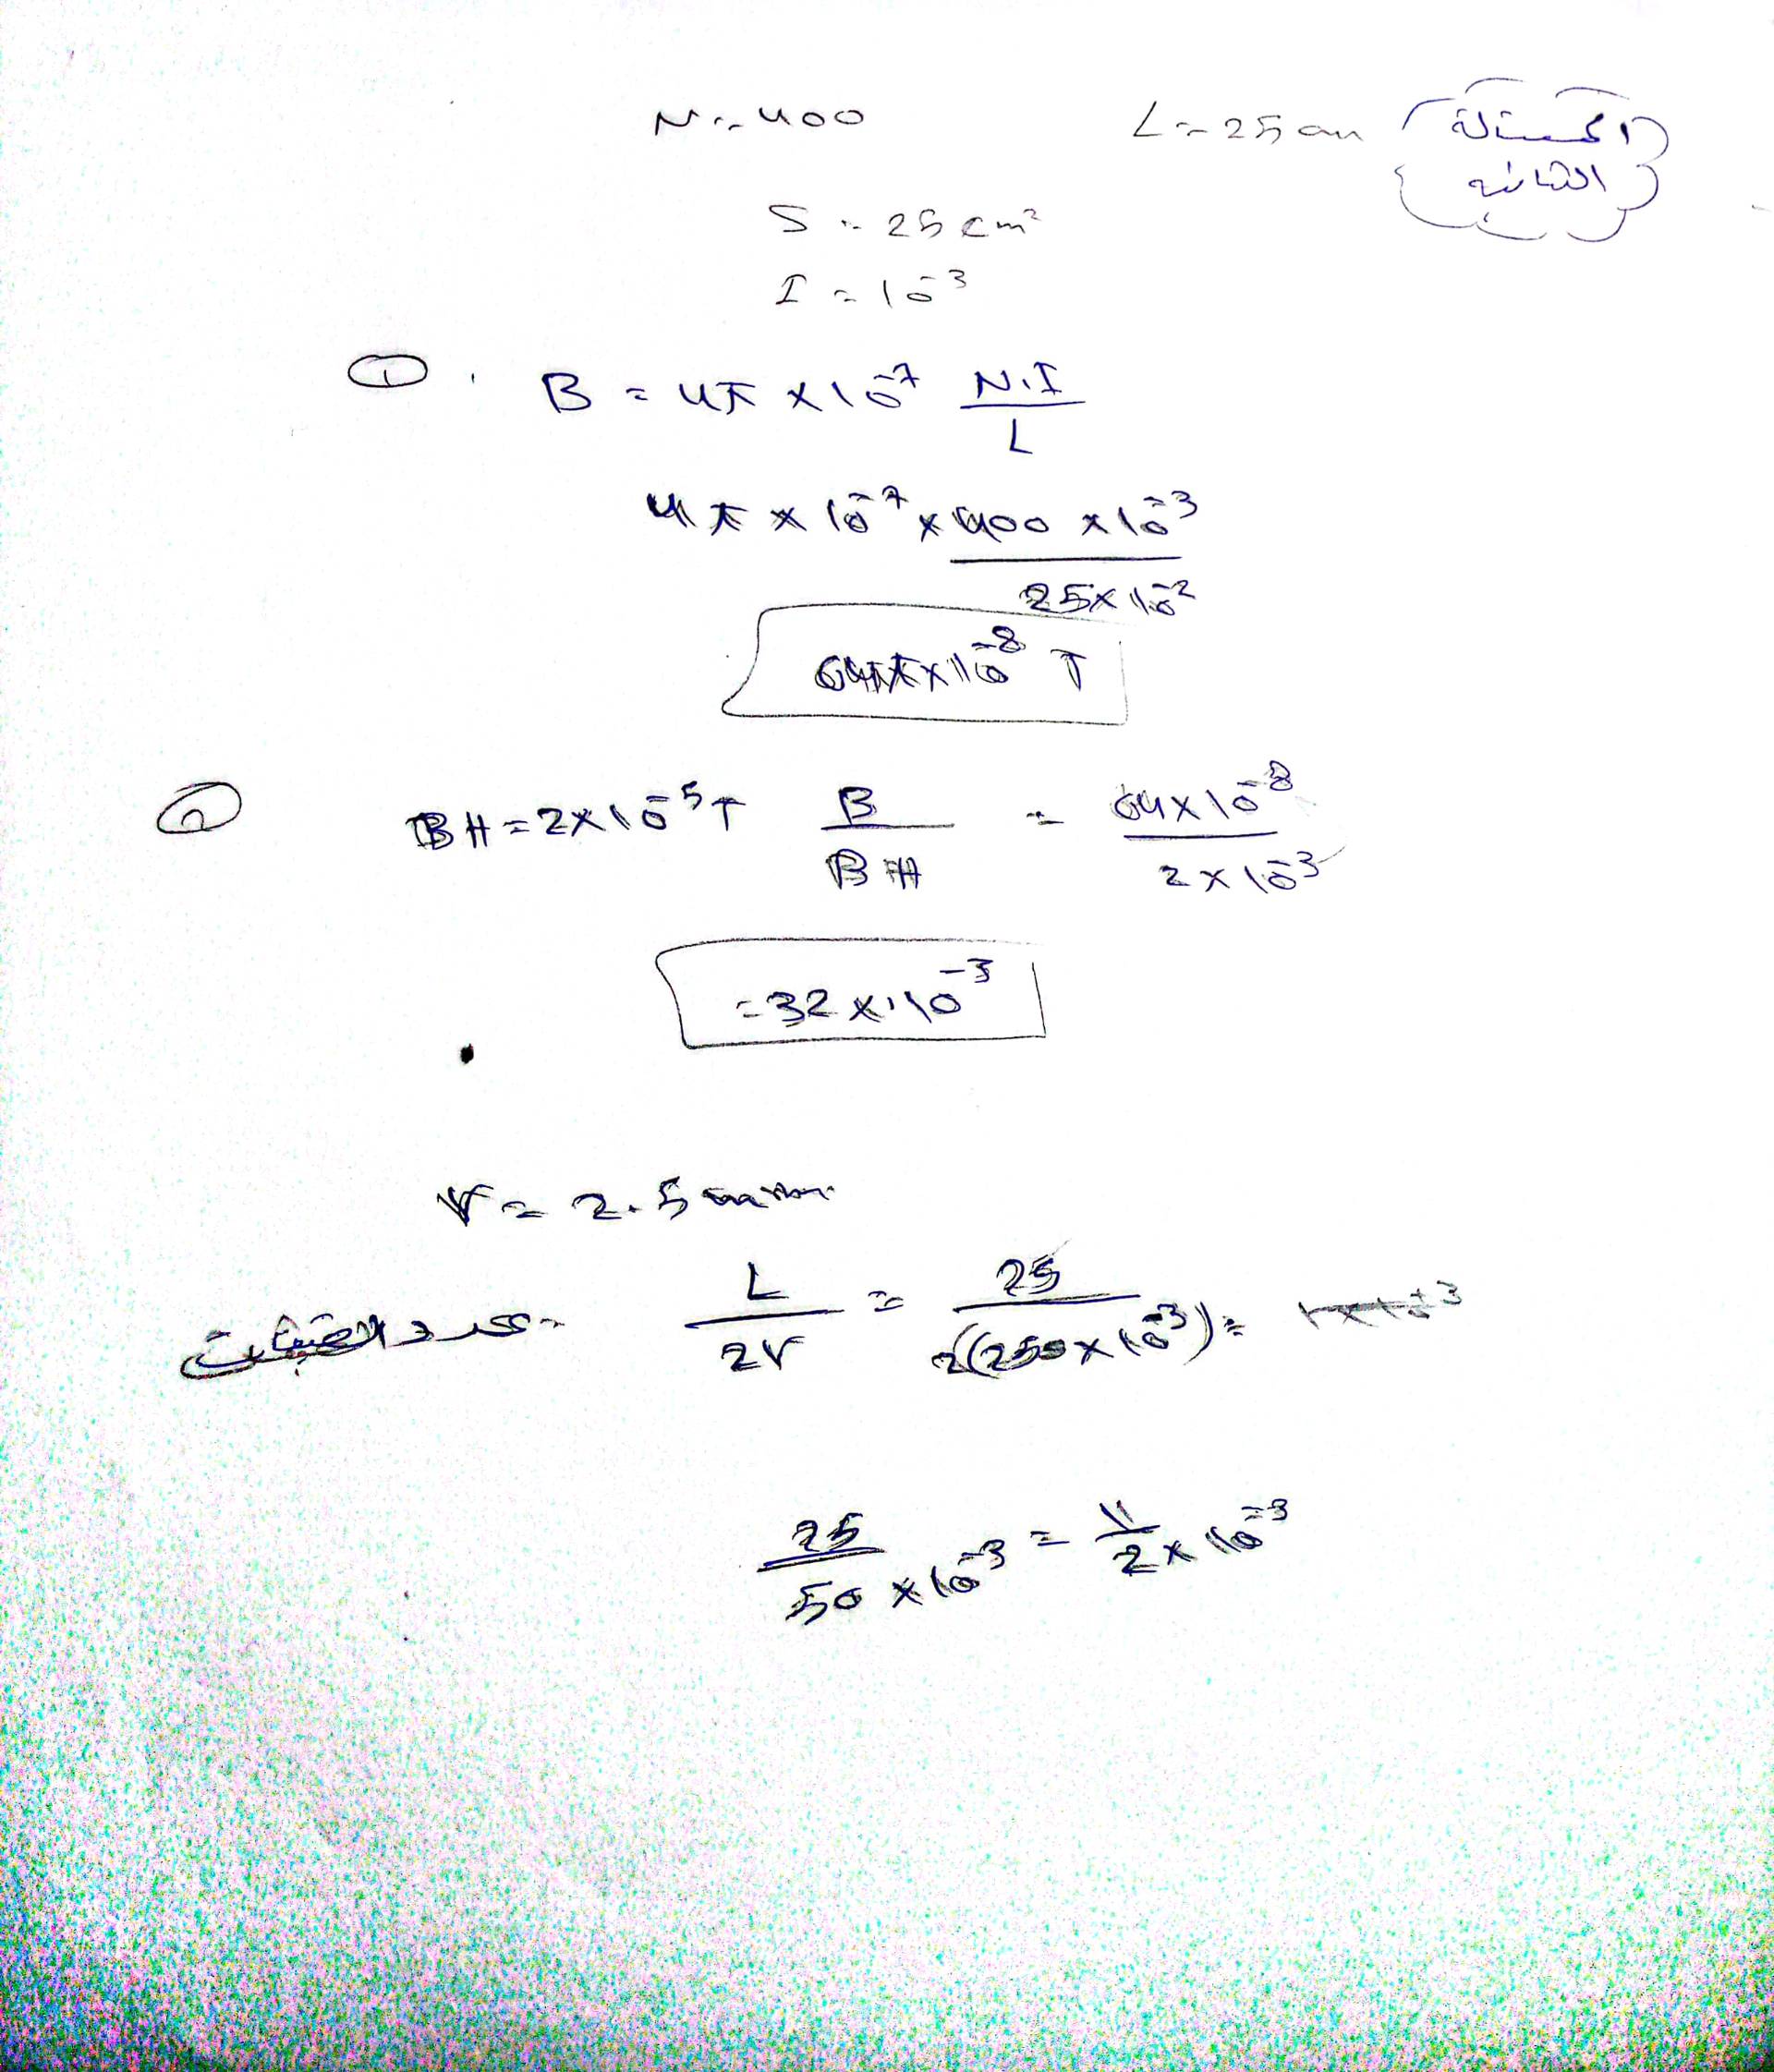 المسألة
الثانية
N = 400 L = 25 cm
S = 25 cm²
I = 10⁻³
① B = 4π × 10⁻⁷ N.I / L
4π × 10⁻⁷ × 400 × 10⁻³ / 25 × 10⁻²
64π × 10⁻⁸ T
② BH = 2 × 10⁻⁵ T B / BH = 64 × 10⁻⁸ / 2 × 10⁻³
= 32 × 10⁻³
r = 2.5 mm
عدد الطبقات = L / 2r = 25 / 2(250 × 10⁻³) =
25 / 50 × 10⁻³ = 1 / 2 × 10⁻³